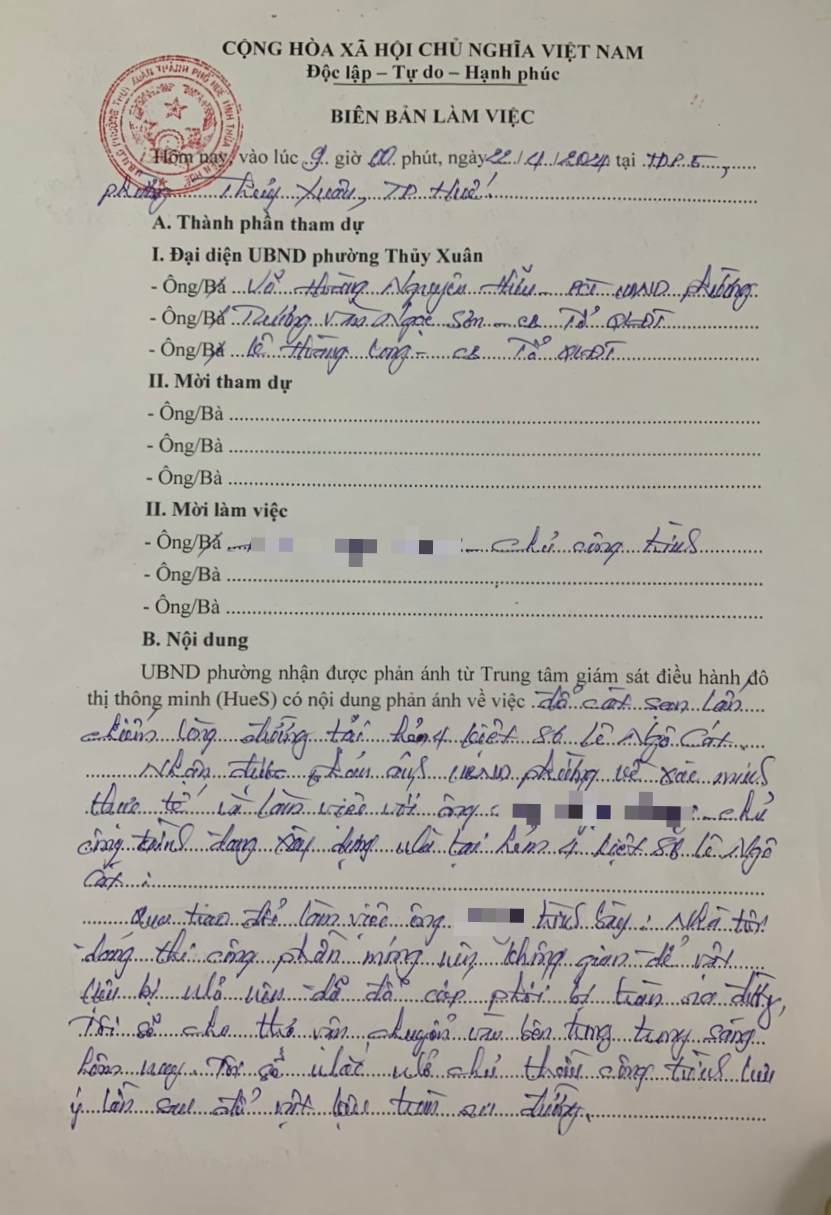 CỘNG HÒA XÃ HỘI CHỦ NGHĨA VIỆT NAM
Độc lập – Tự do – Hạnh phúc
BIÊN BẢN LÀM VIỆC
Hôm nay, vào lúc 9 giờ 00 phút, ngày 22/4/2024 tại TDP 5,
phường Thủy Xuân, TP Huế.
A. Thành phần tham dự
I. Đại diện UBND phường Thủy Xuân
- Ông/Bà Võ Hoàng Nguyên Hiếu - UBND phường
- Ông/Bà Trương Văn Ngọc Sơn - CB Tổ QLĐT
- Ông/Bà Lê Hoàng Long - CB Tổ QLĐT
II. Mời tham dự
- Ông/Bà
- Ông/Bà
- Ông/Bà
II. Mời làm việc
- Ông/Bà chủ công trình
- Ông/Bà
- Ông/Bà
B. Nội dung
UBND phường nhận được phản ánh từ Trung tâm giám sát điều hành đô
thị thông minh (HueS) có nội dung phản ánh về việc đổ cát sạn lấn
chiếm lòng đường tại hẻm 4 kiệt 86 Lê Ngô Cát.
Nhận được phản ánh UBND phường về xác minh
thực tế và làm việc với ông: chủ
công trình đang xây dựng nhà tại hẻm 4 kiệt 86 Lê Ngô
Cát.
Qua trao đổi làm việc ông trình bày: Nhà tôi
đang thi công phần móng nên không gian để vật
liệu bị nhỏ nên đã đổ cấp phối bị tràn ra đường,
Tôi sẽ cho thợ vận chuyển vào bên trong trong sáng
hôm nay. Tôi sẽ nhắc nhở chủ thầu công trình lưu
ý lần sau đổ vật liệu tràn ra đường.